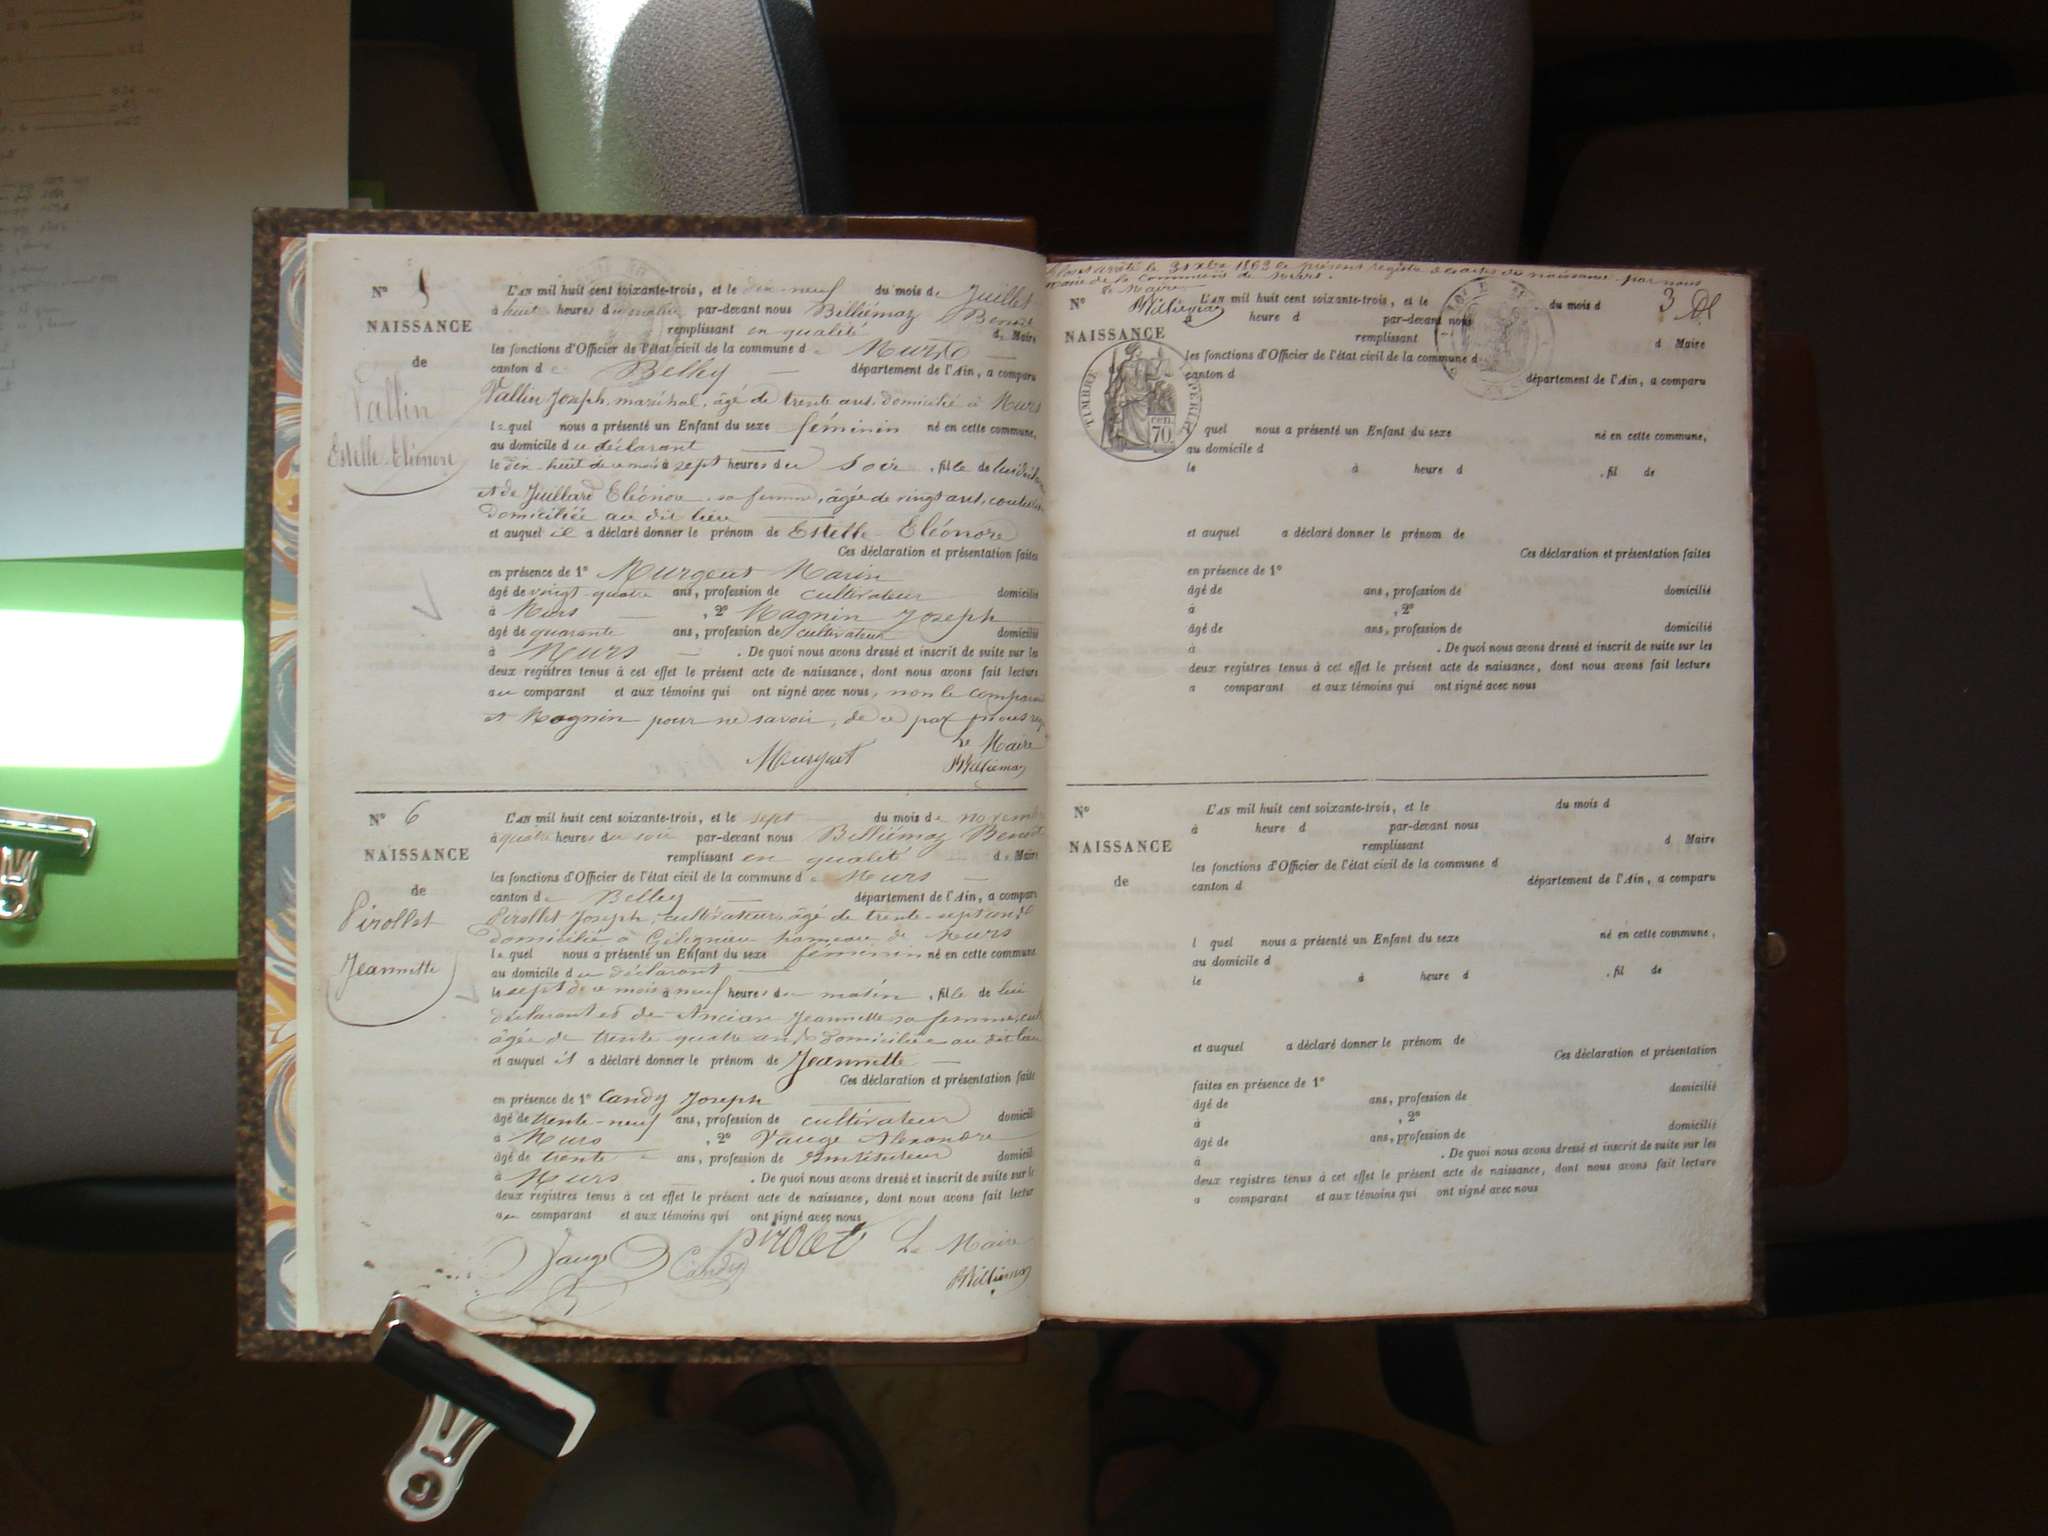 N° 5
NAISSANCE
de
Vallin
Estelle-Eléonore
L'AN mil huit cent soixante-trois, et le dix-neuf du mois de Juillet
à huit heures du matin par-devant nous Billiémaz Benoit
remplissant en qualité de Maire
les fonctions d'Officier de l'état civil de la commune de Murs
canton de Belley département de l'Ain, a comparu
Vallin Joseph, maréchal, âgé de trente ans, domicilié à Murs
lequel nous a présenté un Enfant du sexe féminin né en cette commune,
au domicile du déclarant
le dix-huit de ce mois à sept heures du soir, fille de lui
et de Juillard Eléonore sa femme, âgée de vingt ans,
domiciliée au dit lieu
et auquel il a déclaré donner le prénom de Estelle-Eléonore
Ces déclaration et présentation faites
en présence de 1° Murgeut Marin
âgé de vingt-quatre ans, profession de cultivateur domicilié
à Murs, 2° Magnin Joseph
âgé de quarante ans, profession de cultivateur domicilié
à Murs. De quoi nous avons dressé et inscrit de suite sur les
deux registres tenus à cet effet le présent acte de naissance, dont nous avons fait lecture
au comparant et aux témoins qui ont signé avec nous, non le compara
et Magnin pour ne savoir, de ce par nous req
Le Maire
BBilliemaz
N° 6
NAISSANCE
de
Pirollet
Jeannette
L'AN mil huit cent soixante-trois, et le sept du mois de novembre
à quatre heures du soir par-devant nous Billiémaz Benoit
remplissant en qualité de Maire
les fonctions d'Officier de l'état civil de la commune de Murs
canton de Belley département de l'Ain, a comparu
Pirollet Joseph, cultivateur, âgé de trente-sept ans
domicilié à Gélignieu hameau de Murs
lequel nous a présenté un Enfant du sexe féminin né en cette commune
au domicile du déclarant
le sept de ce mois à neuf heures du matin, fille de lui
déclarant et de Ancian Jeannette sa femme, cul
âgée de trente quatre ans domiciliée au dit lieu
et auquel il a déclaré donner le prénom de Jeannette
Ces déclaration et présentation faite
en présence de 1° Candy Joseph
âgé de trente-neuf ans, profession de cultivateur domicili
à Murs, 2° Vauge Alexandre
âgé de trente ans, profession de Instituteur domicili
à Murs. De quoi nous avons dressé et inscrit de suite sur le
deux registres tenus à cet effet le présent acte de naissance, dont nous avons fait lectur
au comparant et aux témoins qui ont signé avec nous
Vauge Candy pirolet Le Maire
BBilliemaz
Clos et arrêté le 31 xbre 1863 le présent registre des actes de naissance par nous
maire de la commune de Murs.
Le Maire
BBilliemaz
3
N°
NAISSANCE
TIMBRE IMPÉRIAL
70 cen
L'AN mil huit cent soixante-trois, et le du mois d
à heure d par-devant nous
remplissant d Maire
les fonctions d'Officier de l'état civil de la commune d
canton d département de l'Ain, a comparu
l quel nous a présenté un Enfant du sexe né en cette commune,
au domicile d
le à heure d , fil de
et auquel a déclaré donner le prénom de
Ces déclaration et présentation faites
en présence de 1°
âgé de ans, profession de domicilié
à , 2°
âgé de ans, profession de domicilié
à . De quoi nous avons dressé et inscrit de suite sur les
deux registres tenus à cet effet le présent acte de naissance, dont nous avons fait lecture
a comparant et aux témoins qui ont signé avec nous
N°
NAISSANCE
de
L'AN mil huit cent soixante-trois, et le du mois d
à heure d par-devant nous
remplissant d Maire
les fonctions d'Officier de l'état civil de la commune d
canton d département de l'Ain, a comparu
l quel nous a présenté un Enfant du sexe né en cette commune,
au domicile d
le à heure d , fil de
et auquel a déclaré donner le prénom de
Ces déclaration et présentation
faites en présence de 1° domicilié
âgé de ans, profession de
à , 2° domicilié
âgé de ans, profession de
à . De quoi nous avons dressé et inscrit de suite sur les
deux registres tenus à cet effet le présent acte de naissance, dont nous avons fait lecture
a comparant et aux témoins qui ont signé avec nous